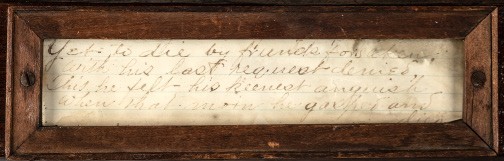 Yet to die by friends forsaken,
With his last request denied,
This he felt his keenest anguish
When that morn he gasp'd and